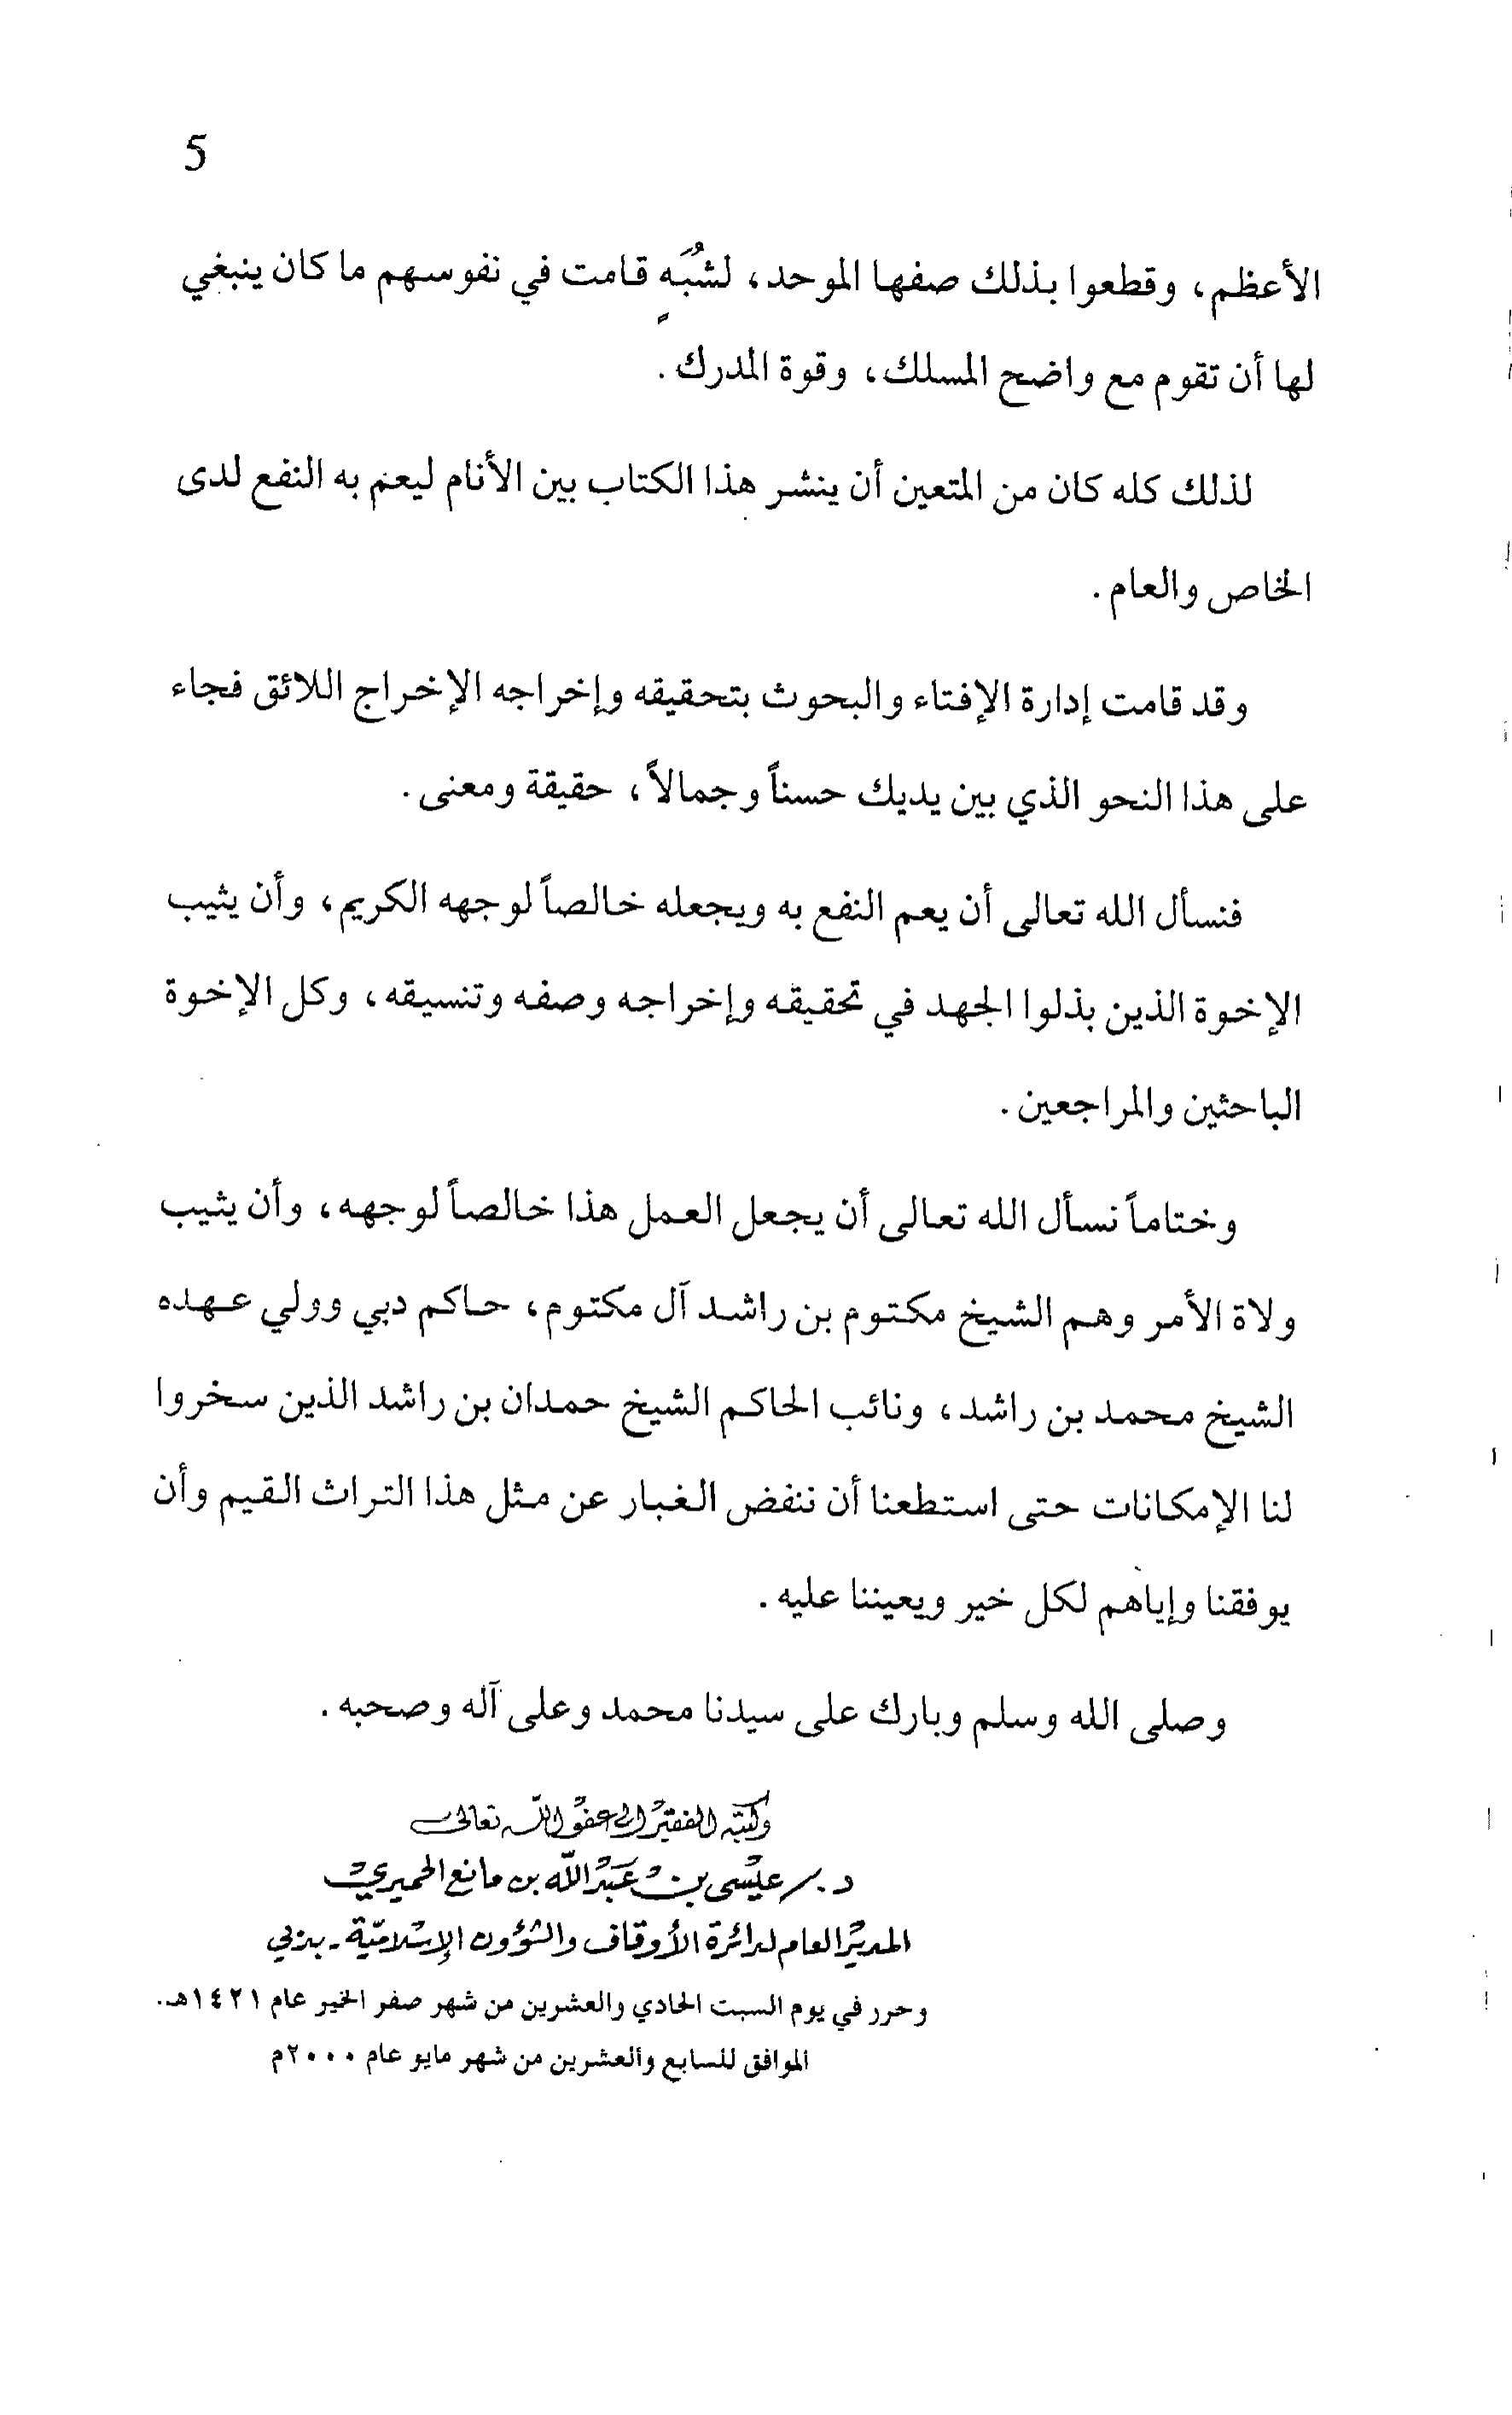 5
الأعظم، وقطعوا بذلك صفها الموحد، لشُبَهٍ قامت في نفوسهم ما كان ينبغي
لها أن تقوم مع واضح المسلك، وقوة المدرك.
لذلك كله كان من المتعين أن ينشر هذا الكتاب بين الأنام ليعم به النفع لدى
الخاص والعام.
وقد قامت إدارة الإفتاء والبحوث بتحقيقه وإخراجه الإخراج اللائق فجاء
على هذا النحو الذي بين يديك حسناً وجمالاً، حقيقة ومعنى.
فنسأل الله تعالى أن يعم النفع به ويجعله خالصاً لوجهه الكريم، وأن يثيب
الإخوة الذين بذلوا الجهد في تحقيقه وإخراجه وصفه وتنسيقه، وكل الإخوة
الباحثين والمراجعين.
وختاماً نسأل الله تعالى أن يجعل العمل هذا خالصاً لوجهه، وأن يثيب
ولاة الأمر وهم الشيخ مكتوم بن راشد آل مكتوم، حاكم دبي وولي عهده
الشيخ محمد بن راشد، ونائب الحاكم الشيخ حمدان بن راشد الذين سخروا
لنا الإمكانات حتى استطعنا أن ننفض الغبار عن مثل هذا التراث القيم وأن
يوفقنا وإياهم لكل خير ويعيننا عليه.
وصلى الله وسلم وبارك على سيدنا محمد وعلى آله وصحبه.
وكتبه الفقير إلى عفو الله تعالى
د. عيسى بن عبد الله بن مانع الحميري
المدير العام لدائرة الأوقاف والشؤون الإسلامية - بدبي
وحرر في يوم السبت الحادي والعشرين من شهر صفر الخير عام ١٤٢١هـ.
الموافق للسابع والعشرين من شهر مايو عام ٢٠٠٠م